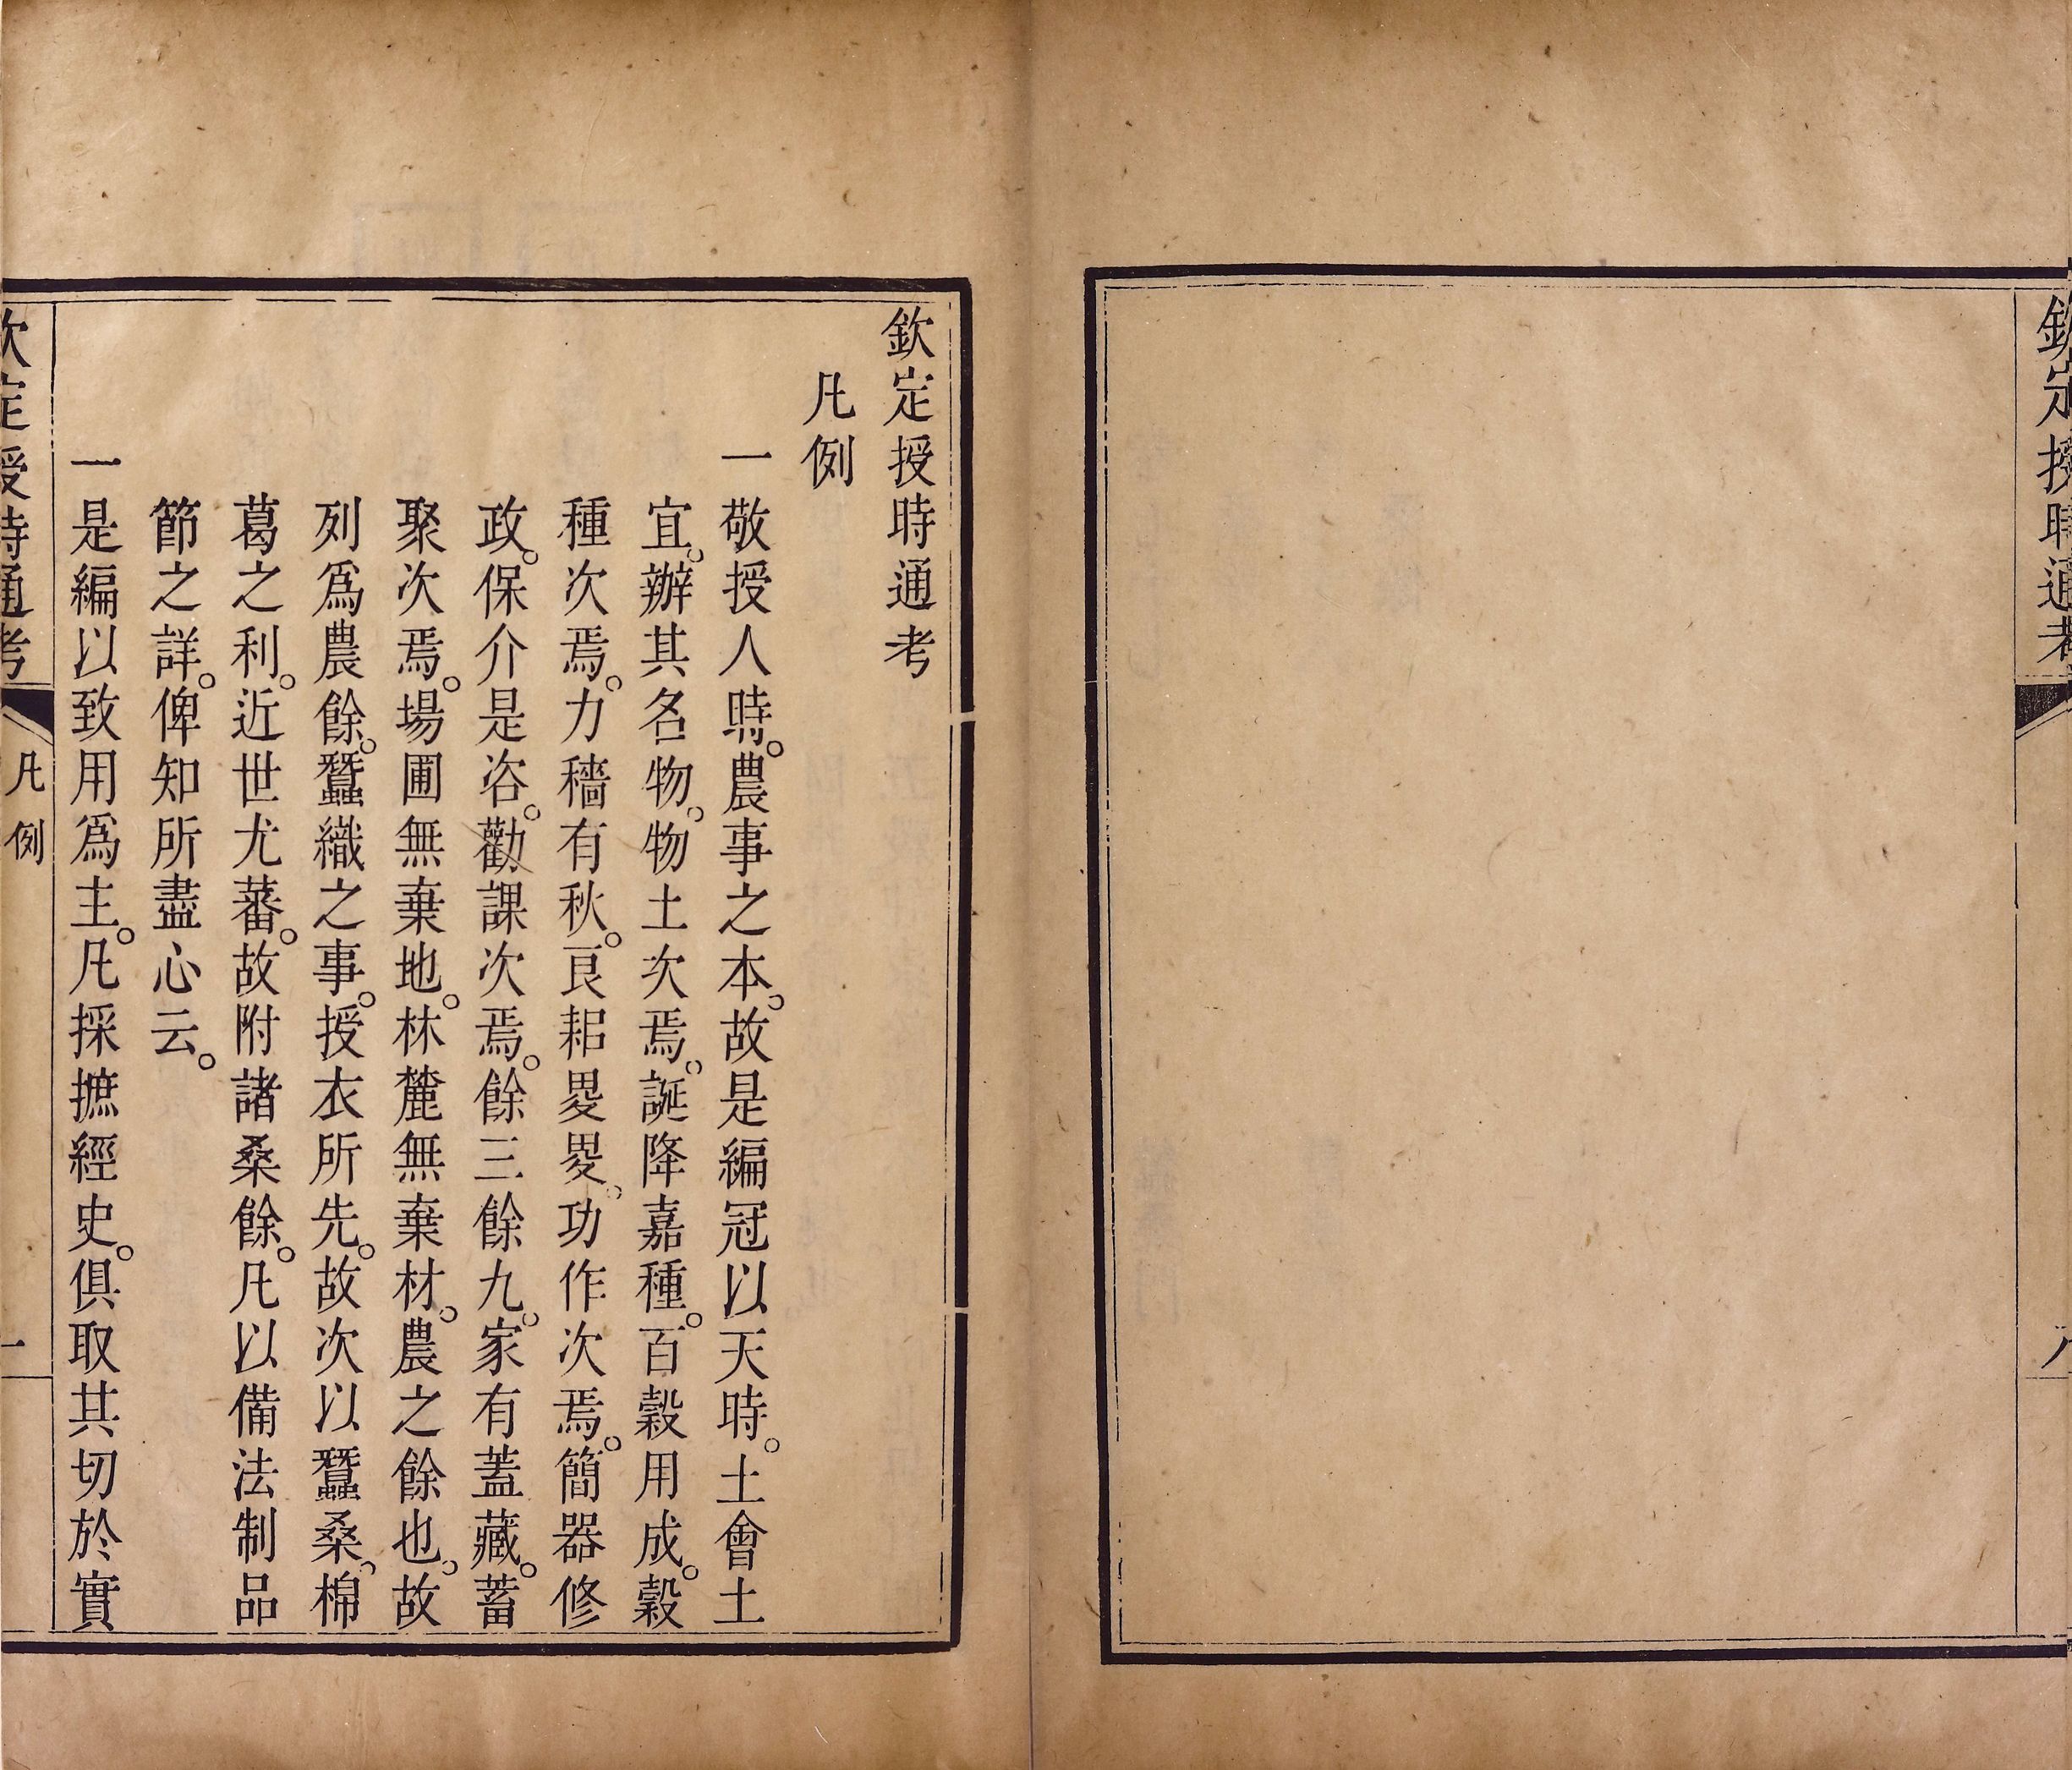 欽定授時通考
八
欽定授時通考
凡例
一敬授人時。農事之本。故是編冠以天時。土會土
宜。辦其名物。物土次焉。誕降嘉種。百穀用成。穀
種次焉。力穡有秋。良耜畟畟。功作次焉。簡器修
政。保介是咨。勸課次焉。餘三餘九。家有蓋藏。蓄
聚次焉。場圃無棄地。林麓無棄材。農之餘也。故
列爲農餘。蠶織之事。授衣所先。故次以蠶桑。棉
葛之利。近世尤蕃。故附諸桑餘。凡以備法制品
節之詳。俾知所盡心云。
一是編以致用爲主。凡採摭經史。俱取其切於實
欽定授時通考
凡例
一